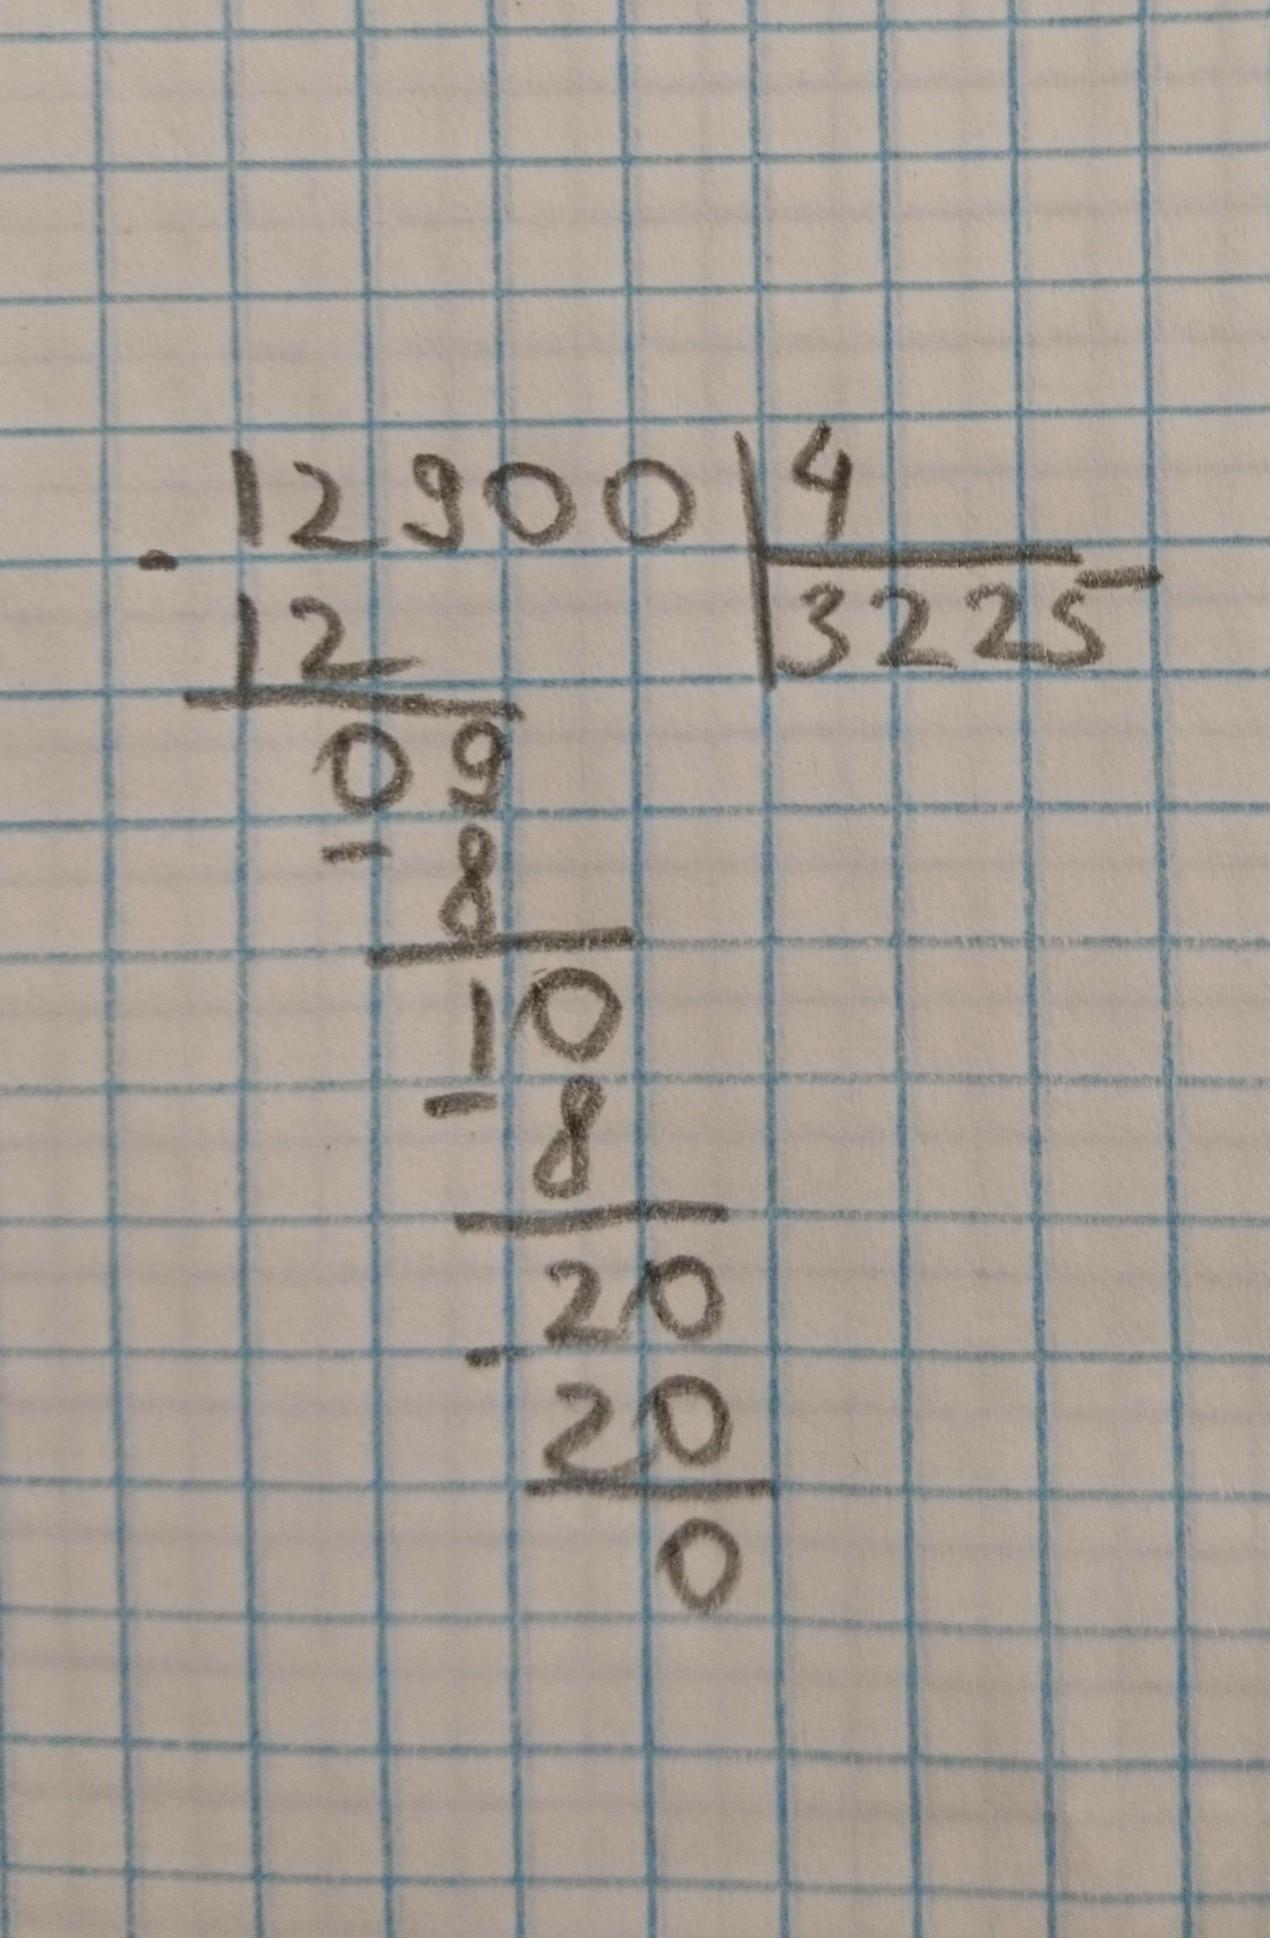 12900 | 4
- 3225
12
09
- 8
10
- 8
20
- 20
0